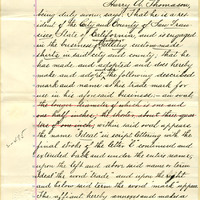 Harry A. Thomason,
being duly sworn says, That he is a res-
ident of the City and County of San Fran-
cisco, State of California, and is engaged
in the business selling custom-made
shirts in said city and county; that he
has made and adopted and does hereby
make and adopt, the following described
mark and name as his trade mark for
use in his aforesaid business: — an oval
the longer diameter of which is one and
one half inches; the shorter about three quar-
ters of an inch; within said oval appears
the name "Ideal" in script lettering with the
final stroke of the letter "l" continued and
extended back and under the entire name;
upon the left and above said name is term
"Great" the word "trade" and upon the right
and below said term the word mark appears.
The affiant hereby